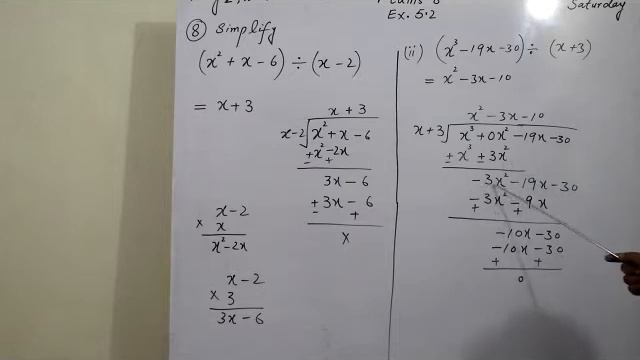 Ex. 5.2
Saturday
⑧ Simplify
(x² + x - 6) ÷ (x - 2)
= x + 3
x + 3
x-2 √ x² + x - 6
± x² - 2x
- +
3x - 6
± 3x - 6
+
x
x - 2
× x
x² - 2x
x - 2
× 3
3x - 6
(ii) (x³ - 19x - 30) ÷ (x + 3)
= x² - 3x - 10
x² - 3x - 10
x + 3 √ x³ + 0x² - 19x - 30
± x³ ± 3x²
- 3x² - 19x - 30
- 3x² - 9x
+ +
- 10x - 30
- 10x - 30
+ +
0